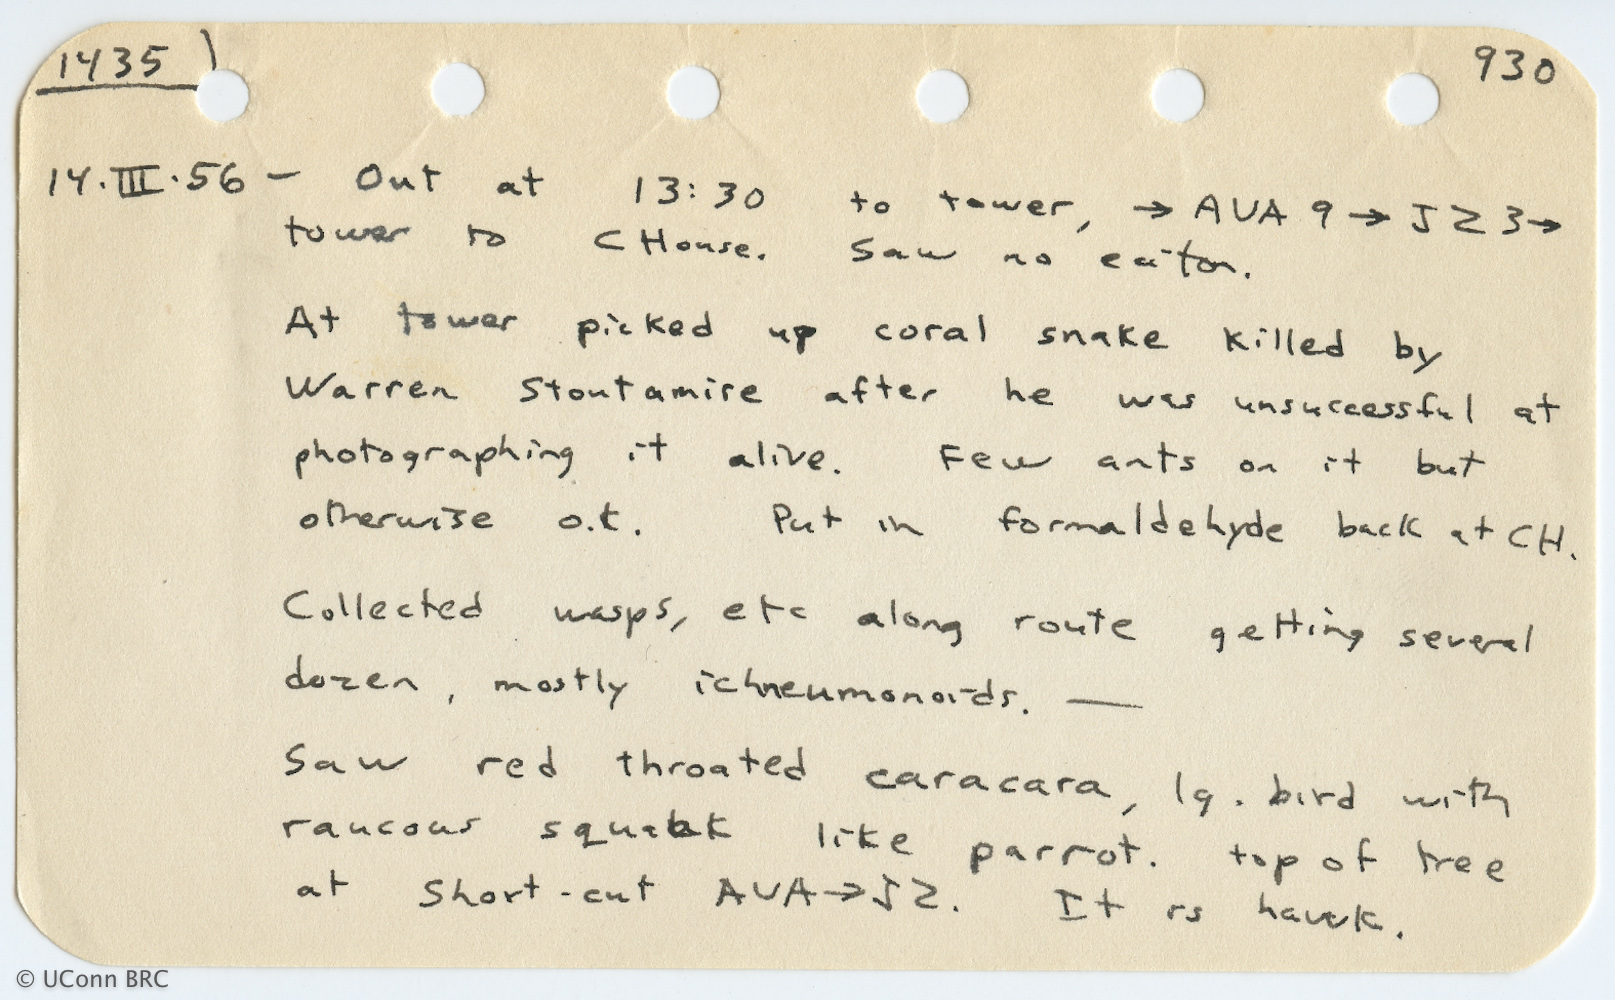 1435
930
14.III.56 – Out at 13:30 to tower, → AVA 9 → JZ 3 →
tower to CHouse. Saw no eciton.
At tower picked up coral snake killed by
Warren Stoutamire after he was unsuccessful at
photographing it alive. Few ants on it but
otherwise o.k. Put in formaldehyde back at CH.
Collected wasps, etc along route getting several
dozen, mostly ichneumonoids. —
Saw red throated caracara, lg. bird with
raucous squawk like parrot. top of tree
at short-cut AVA→JZ. It is hawk.
© UConn BRC